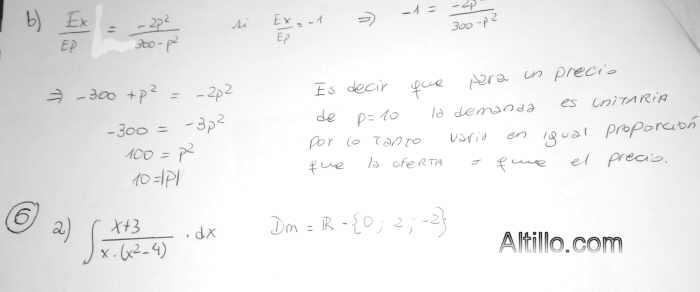 b) Ex/Ep = -2p²/300-p² si Ex/Ep = -1 ⇒ -1 = -2p²/300-p²
⇒ -300 + p² = -2p²
-300 = -3p²
100 = p²
10 = |p|
Es decir que para un precio
de p=10 la demanda es UNITARIA
por lo TANTO varia en igual proporción
que la OFERTA = que el precio.
5 a) ∫ x+3/x.(x²-4) . dx Dm = ℝ - {0; 2; -2}
Altillo.com